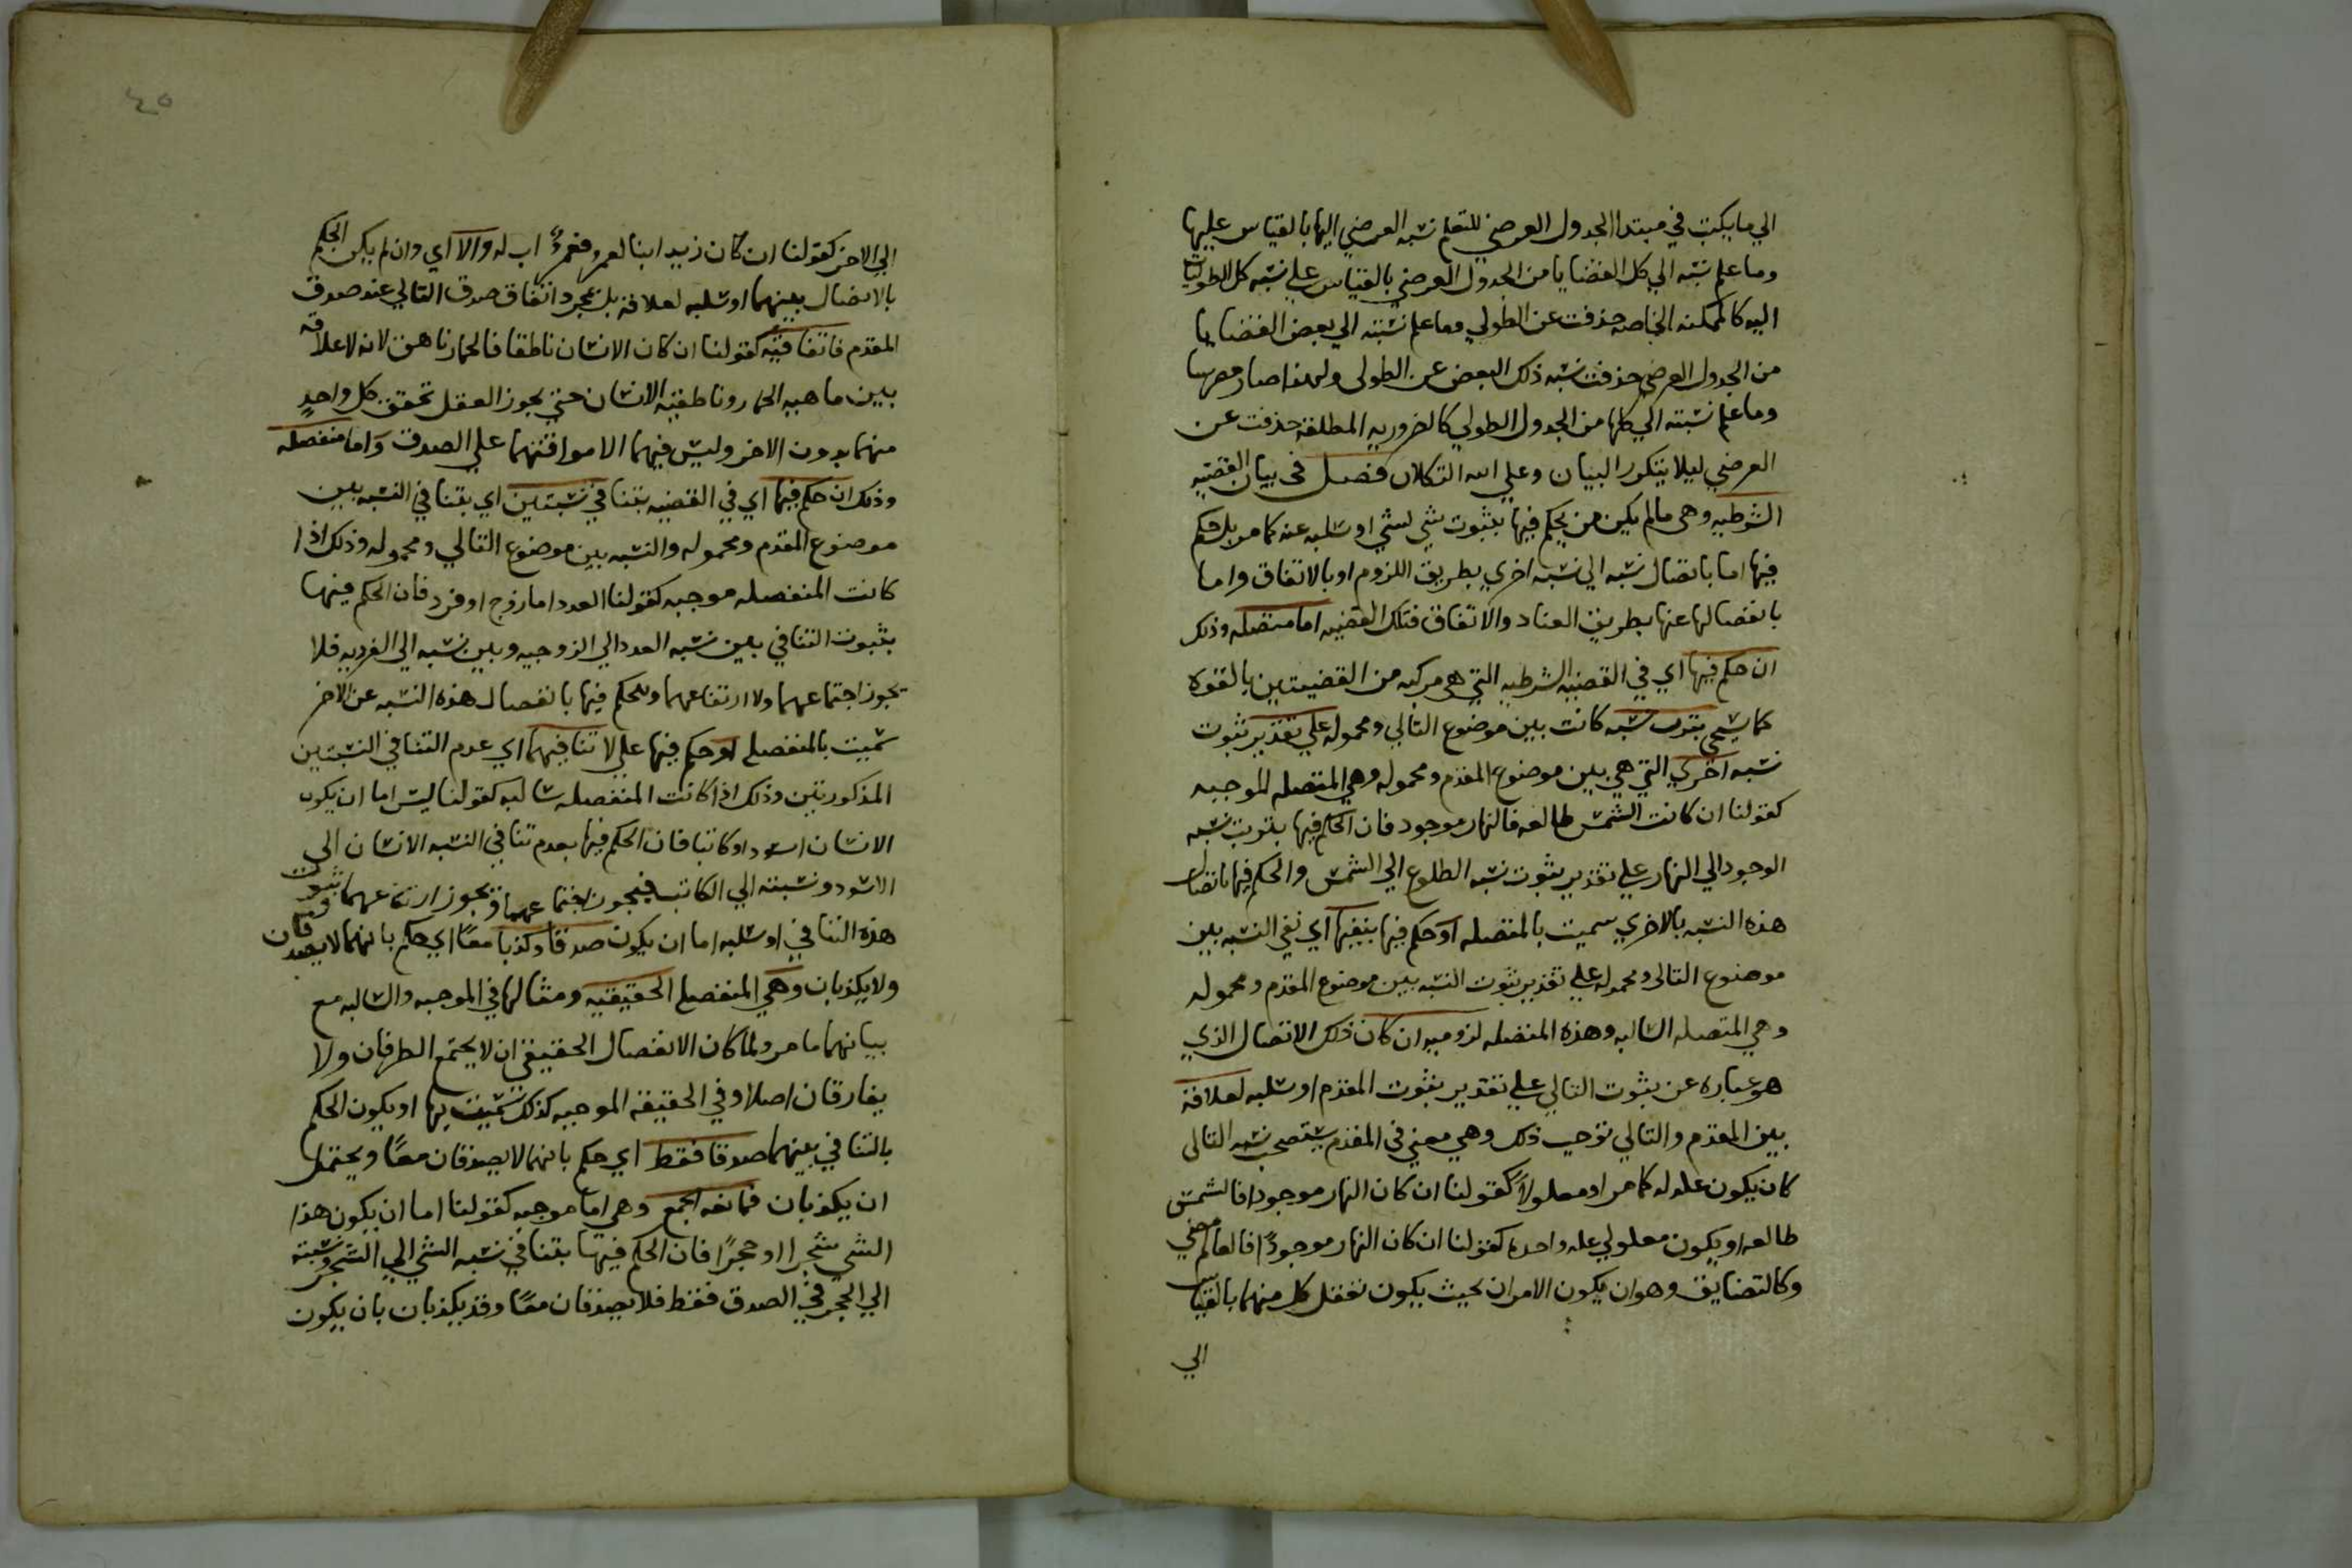 الي ما يكتب في مبتدا الجدول العرضي للتعلم نسبه العرضي اليها بالقياس عليها
وما علم نسبه الي كل القضايا من الجدول العرضي بالقياس علي نسبه كل الطوليات
اليه كالممكنه الخاصه حذفت عن الطولي وما علم نسبته الي بعض القضايا
من الجدول العرضي حذفت نسبه ذلك البعض عن الطولى ولهذا صار
وما علم نسبته الي كلها من الجدول الطولي كالضروريه المطلقة حذفت عن
العرضي ليلا يتكرر البيان وعلي الله التكلان فصل فى بيان القضيه
الشرطيه وهى مالم يكن من يحكم فيها بثبوت شي لشي او سلبه عنه كما مر بل حكم
فيها اما باتصال نسبه الي نسبه اخري بطريق اللزوم او بالاتفاق واما
بانفصالها عنها بطريق العناد والاتفاق فتلك القضيه اما متصله وذلك
ان حكم فيها اي في القضيه الشرطيه التي هى مركبه من القضيتين بالقوه
كما سيجي بثبوت نسبه كانت بين موضوع التالي ومحموله علي تقدير ثبوت
نسبه اخري التي هي بين موضوع المقدم ومحموله وهي المتصله الموجبه
كقولنا ان كانت الشمس طالعه فالنهار موجود فان الحكم فيها بثبوت نسبه
الوجود الي النهار علي تقدير ثبوت نسبه الطلوع الي الشمس والحكم فيها باتصال
هذه النسبه بالاخري سميت بالمتصله او حكم فيها بنفيها اي نفي النسبه بين
موضوع التالى ومحموله علي تقدير ثبوت النسبه بين موضوع المقدم ومحموله
وهي المتصله السالبه وهذه المتصله لزوميه ان كان ذلك الاتصال الذي
هو عباره عن ثبوت التالي علي تقدير ثبوت المقدم او سلبه لعلاقة
بين المقدم والتالي توجب ذلك وهي معني في المقدم يستصحب نسبه التالى
كان يكون عله له كما مر او معلولاً كقولنا ان كان النهار موجودا فالشمس
طالعه او يكون معلولي عله واحده كقولنا ان كان النهار موجودًا فالعالم مضي
وكالتضايف وهو ان يكون الامران بحيث يكون تعقل كل منهما بالقياس
الي
٤٥
الي الاخر كقولنا ان كان زيد ابنا لعمرو فعمروٌ اب له والا اي وان لم يكن الحكم
بالاتصال بينهما او سلبه لعلاقة بل بمجرد اتفاق صدق التالي عند صدق
المقدم فاتفاقيه كقولنا ان كان الانسان ناطقا فالحمار ناهق لانه لا علاقه
بين ماهيه الحمار وناطقيه الانسان حتي يجوز العقل تحقق كل واحدٍ
منهما بدون الاخر وليس فيهما الا موافقتهما علي الصدق واما منفصله
وذلك ان حكم فيها اي في القضيه بتنافي نسبتين اي بتنافي النسبه بين
موضوع المقدم ومحموله والنسبه بين موضوع التالي ومحموله وذلك اذا
كانت المنفصله موجبه كقولنا العدد اما زوج او فرد فان الحكم فيها
بثبوت التنافي بين نسبه العدد الي الزوجيه وبين نسبه الي الفرديه فلا
يجوز اجتماعهما ولا ارتفاعهما وللحكم فيها بانفصال هذه النسبه عن الاخر
سميت بالمنفصله او حكم فيها علي لا تنافيهما اي عدم التنافي النسبتين
المذكورتين وذلك اذا كانت المنفصله سالبه كقولنا ليس اما ان يكون
الانسان اسود او كاتبا فان الحكم فيها بعدم تنافي النسبه الانسان الى
الاسود ونسبته الي الكاتب فيجوز اجتماعهما ويجوز ارتفاعهما ثبوت
هذه التنافي او سلبه اما ان يكون صدقا وكذبا معًا اي حكم بانهما لا يصدقان
ولا يكذبان وهي المنفصله الحقيقيه ومثالها في الموجبه والسالبه مع
بيانهما ما مر ولما كان الانفصال الحقيقي ان لا يجتمع الطرفان ولا
يفارقان اصلا وفي الحقيقه الموجبه كذلك سميت بها او يكون الحكم
بالتنافي بينهما صدقا فقط اي حكم بانهما لا يصدقان معًا ويحتمل
ان يكذبان فمانعه الجمع وهي اما موجبه كقولنا اما ان يكون هذا
الشي شجرا او حجرًا فان الحكم فيها بتنافي نسبه الشي الي الشجر ونسبته
الي الحجر في الصدق فقط فلا يصدقان معًا وقد يكذبان بان يكون